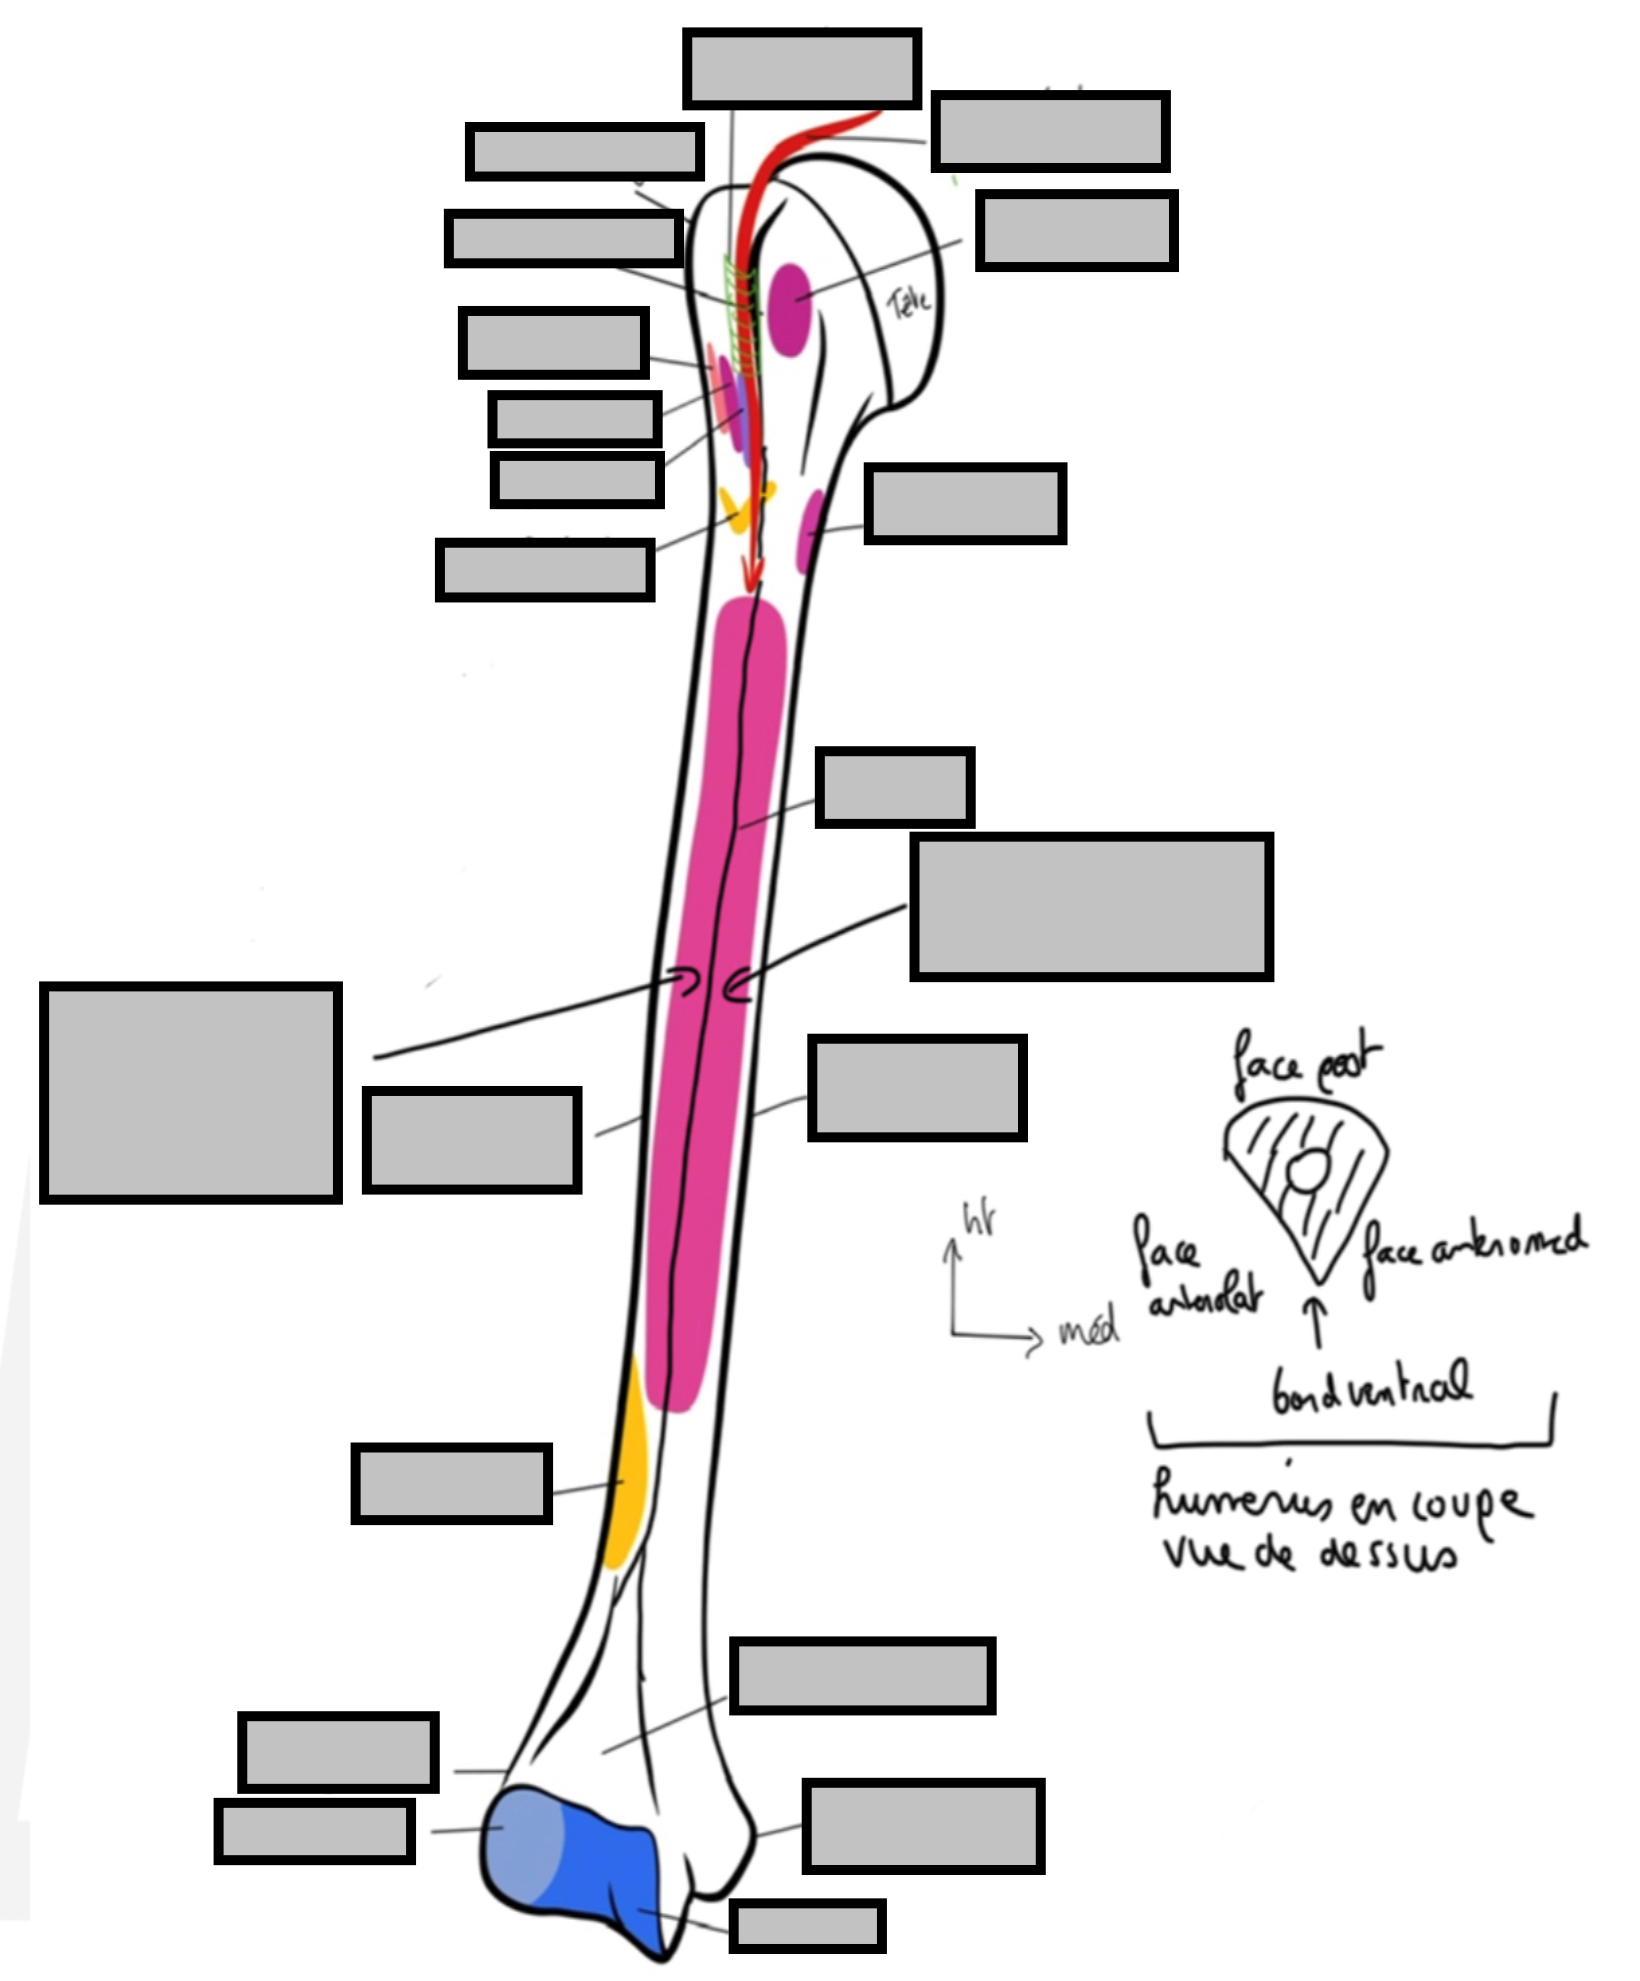 Tête
face post
hr
face
antérolat
face antéromed
méd
bord ventral
humérus en coupe
vue de dessus